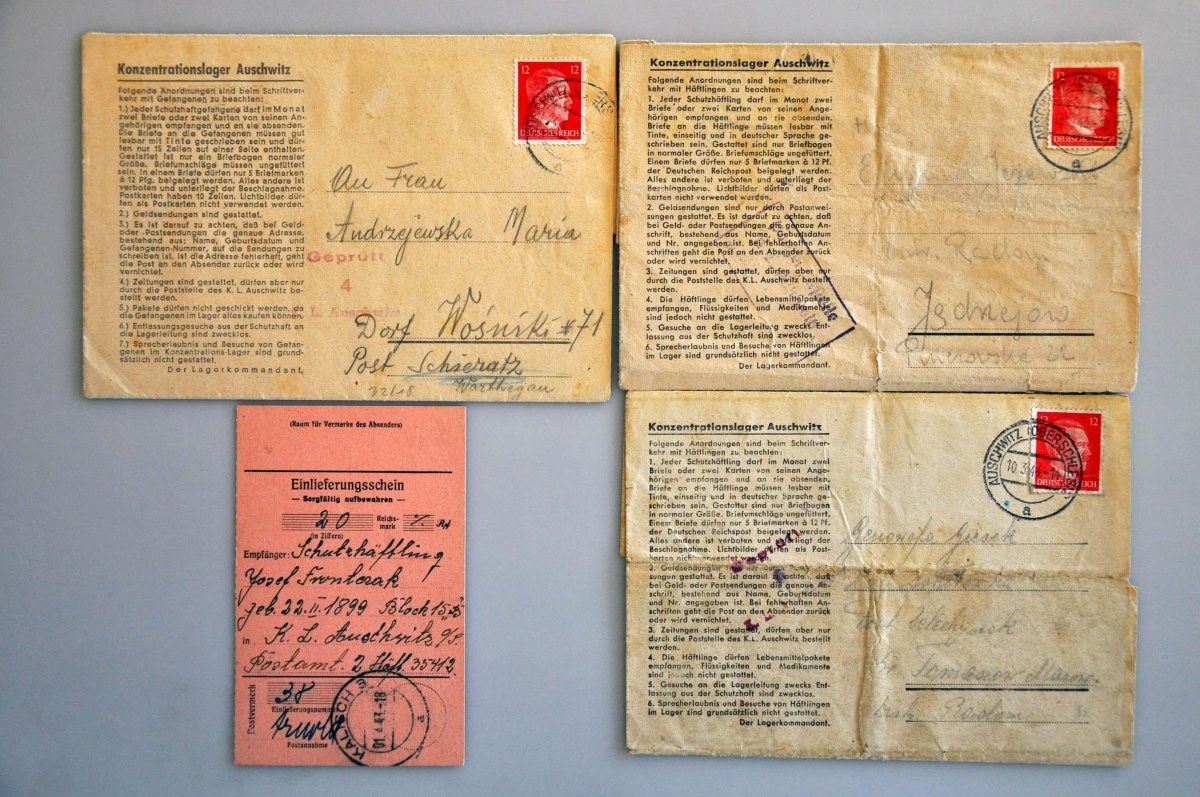 Konzentrationslager Auschwitz
Folgende Anordnungen sind beim Schriftver-
kehr mit Gefangenen zu beachten:
1.) Jeder Schutzhaftgefangene darf im Monat
zwei Briefe oder zwei Karten von seinen An-
gehörigen empfangen und an sie absenden.
Die Briefe an die Gefangenen müssen gut
lesbar mit Tinte geschrieben sein und dür-
fen nur 15 Zeilen auf einer Seite enthalten.
Gestattet ist nur ein Briefbogen normaler
Größe. Briefumschläge müssen ungefüttert
sein. In einem Briefe dürfen nur 5 Briefmarken
à 12 Pfg. beigelegt werden. Alles andere ist
verboten und unterliegt der Beschlagnahme.
Postkarten haben 10 Zeilen. Lichtbilder dür-
fen als Postkarten nicht verwendet werden.
2.) Geldsendungen sind gestattet.
3.) Es ist darauf zu achten, daß bei Geld-
oder Postsendungen die genaue Adresse,
bestehend aus: Name, Geburtsdatum und
Gefangenen-Nummer, auf die Sendungen zu
schreiben ist. Ist die Adresse fehlerhaft, geht
die Post an den Absender zurück oder wird
vernichtet.
4.) Zeitungen sind gestattet, dürfen aber nur
durch die Poststelle des K. L. Auschwitz be-
stellt werden.
5.) Pakete dürfen nicht geschickt werden, da
die Gefangenen im Lager alles kaufen können.
6.) Entlassungsgesuche aus der Schutzhaft an
die Lagerleitung sind zwecklos.
7.) Sprecherlaubnis und Besuche von Gefan-
genen im Konzentrations-Lager sind grund-
sätzlich nicht gestattet.
Der Lagerkommandant.
12 12
DEUTSCHES REICH
An Frau
Andrzejewska Maria
Geprüft
4
Dorf Wośniki #71
Post Schieratz
32/18 Warthegau
Konzentrationslager Auschwitz
Folgende Anordnungen sind beim Schriftver-
kehr mit Häftlingen zu beachten:
1. Jeder Schutzhäftling darf im Monat zwei
Briefe oder zwei Karten von seinen Ange-
hörigen empfangen und an sie absenden.
Briefe an die Häftlinge müssen lesbar mit
Tinte, einseitig und in deutscher Sprache ge-
schrieben sein. Gestattet sind nur Briefbogen
in normaler Größe. Briefumschläge ungefüttert.
Einem Briefe dürfen nur 5 Briefmarken à 12 Pf.
der Deutschen Reichspost beigelegt werden.
Alles andere ist verboten und unterliegt der
Beschlagnahme. Lichtbilder dürfen als Post-
karten nicht verwendet werden.
2. Geldsendungen sind nur durch Postanwei-
sungen gestattet. Es ist darauf zu achten, daß
bei Geld- oder Postsendungen die genaue An-
schrift, bestehend aus Name, Geburtsdatum
und Nr. angegeben ist. Bei fehlerhaften An-
schriften geht die Post an den Absender zurück
oder wird vernichtet.
3. Zeitungen sind gestattet, dürfen aber nur
durch die Poststelle des K.L. Auschwitz bestellt
werden.
4. Die Häftlinge dürfen Lebensmittelpakete
empfangen, Flüssigkeiten und Medikamente
sind jedoch nicht gestattet.
5. Gesuche an die Lagerleitung zwecks Ent-
lassung aus der Schutzhaft sind zwecklos.
6. Sprecherlaubnis und Besuche von Häftlingen
im Lager sind grundsätzlich nicht gestattet.
Der Lagerkommandant.
12 12
DEUTSCHES REICH
(Raum für Vermerke des Absenders)
Einlieferungsschein
– Sorgfältig aufbewahren –
20 Reichs-
mark
(in Ziffern)
Empfänger: Schutzhäftling
geb. 22. II. 1899 Block 15a
in K. L. Auschwitz O/S.
Postamt. 2 Häft. 35412
Postvermerk
38
Einlieferungsnummer
Postannahme
KALISCH
01.4.43.-18
a
Konzentrationslager Auschwitz
Folgende Anordnungen sind beim Schriftver-
kehr mit Häftlingen zu beachten:
1. Jeder Schutzhäftling darf im Monat zwei
Briefe oder zwei Karten von seinen Ange-
hörigen empfangen und an sie absenden.
Briefe an die Häftlinge müssen lesbar mit
Tinte, einseitig und in deutscher Sprache ge-
schrieben sein. Gestattet sind nur Briefbogen
in normaler Größe. Briefumschläge ungefüttert.
Einem Briefe dürfen nur 5 Briefmarken à 12 Pf.
der Deutschen Reichspost beigelegt werden.
Alles andere ist verboten und unterliegt der
Beschlagnahme. Lichtbilder dürfen als Post-
karten nicht verwendet werden.
2. Geldsendungen sind nur durch Postanwei-
sungen gestattet. Es ist darauf zu achten, daß
bei Geld- oder Postsendungen die genaue An-
schrift, bestehend aus Name, Geburtsdatum
und Nr. angegeben ist. Bei fehlerhaften An-
schriften geht die Post an den Absender zurück
oder wird vernichtet.
3. Zeitungen sind gestattet, dürfen aber nur
durch die Poststelle des K.L. Auschwitz bestellt
werden.
4. Die Häftlinge dürfen Lebensmittelpakete
empfangen, Flüssigkeiten und Medikamente
sind jedoch nicht gestattet.
5. Gesuche an die Lagerleitung zwecks Ent-
lassung aus der Schutzhaft sind zwecklos.
6. Sprecherlaubnis und Besuche von Häftlingen
im Lager sind grundsätzlich nicht gestattet.
Der Lagerkommandant.
12 12
DEUTSCHES REICH
AUSCHWITZ (OBERSCHLES)
a